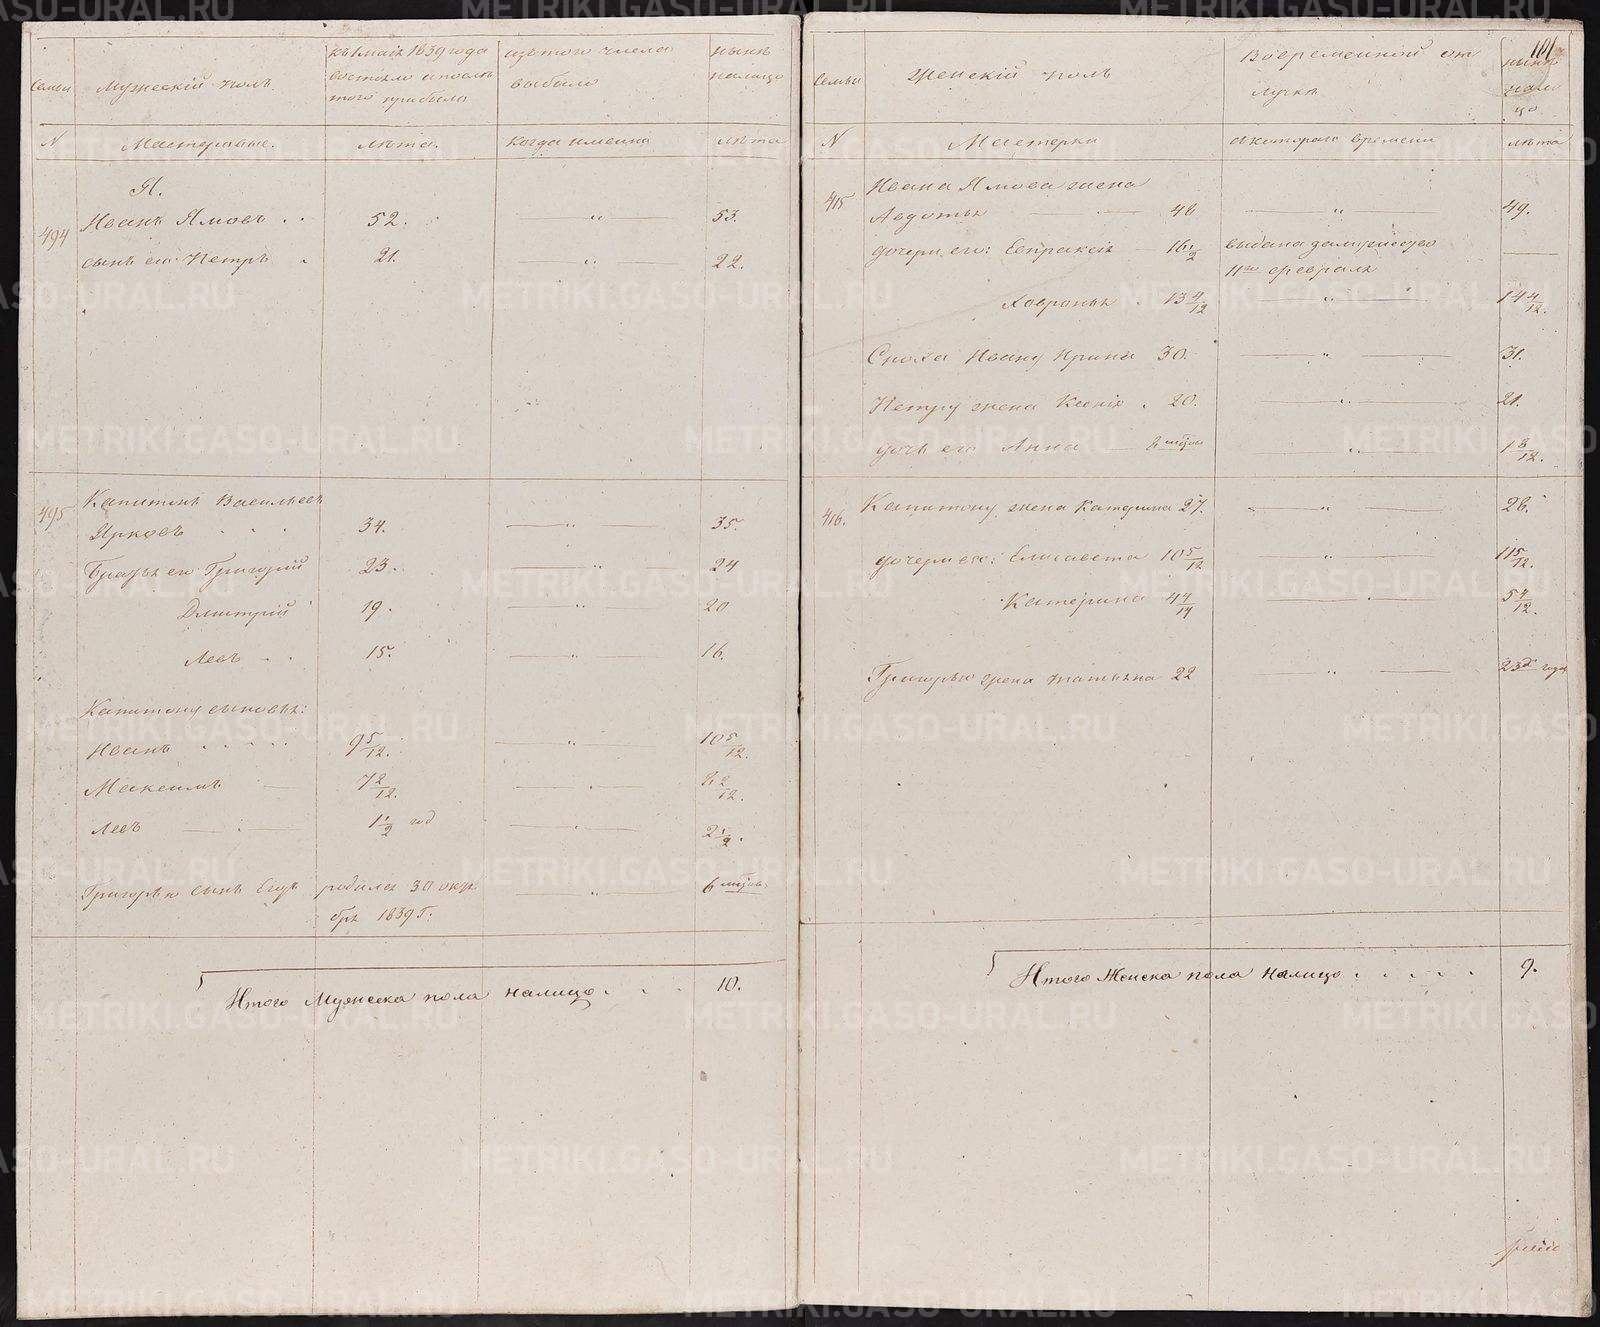 Семьи
Мужескій полъ.
къ 1 маія 1839 года
состояло и послѣ
того прибыло
изъ того числа
выбыло
нынѣ
налицо
N
Мастеровые.
лѣта.
когда именно
лѣта
Я.
494
Иванъ Ямовъ . . 52. — " — 53.
сынъ его Петръ . 21. " — 22.
495
Капитонъ Васильевъ
Ярковъ . . 34. — " — 35.
Братья его Григорий 23. — " — 24
Дмитрій 19. — " — 20
Левъ . . 15. — " — 16.
Капитону сыновья:
Иванъ . . . . . 9 5/12. — " — 10 5/12.
Максимъ — 7 2/12. — . — 8 2/12.
Левъ — . — 1 1/2 год — . — 2 1/2.
Григорью сынъ родился 30 октя " 6 мѣсяцов.
бря 1839 г.
Итого Мужеска пола налицо . . . 10.
101
Семьи
Женскій полъ
Вовременной от
лучкѣ
нынѣ
нали
цо
N
Мастерки
скотораго времени
лѣта
415
Ивана Ямова жена
Авдотья — — 48 — " — 49.
дочери его: Евпраксія — 16 1/2 выдана замужество —
11го февраля
Хавронья . 13 4/12 — " — 14 4/12.
Сноха Ивану Ирина 30. — " — 31.
Петру жена Ксенія . 20. — " — 21.
дочь его Анна — 8 мѣсяцов — " — 1 8/12.
416.
Капитону жена Катерина 27. — " — 28.
дочери ея: Елисавета 10 5/12 — " — 11 5/12.
Катерина 4 4/12 — . — 5 4/12.
Григорью жена татьяна 22 — " — 23 года
Итого Женска пола налицо . . . . . 9.